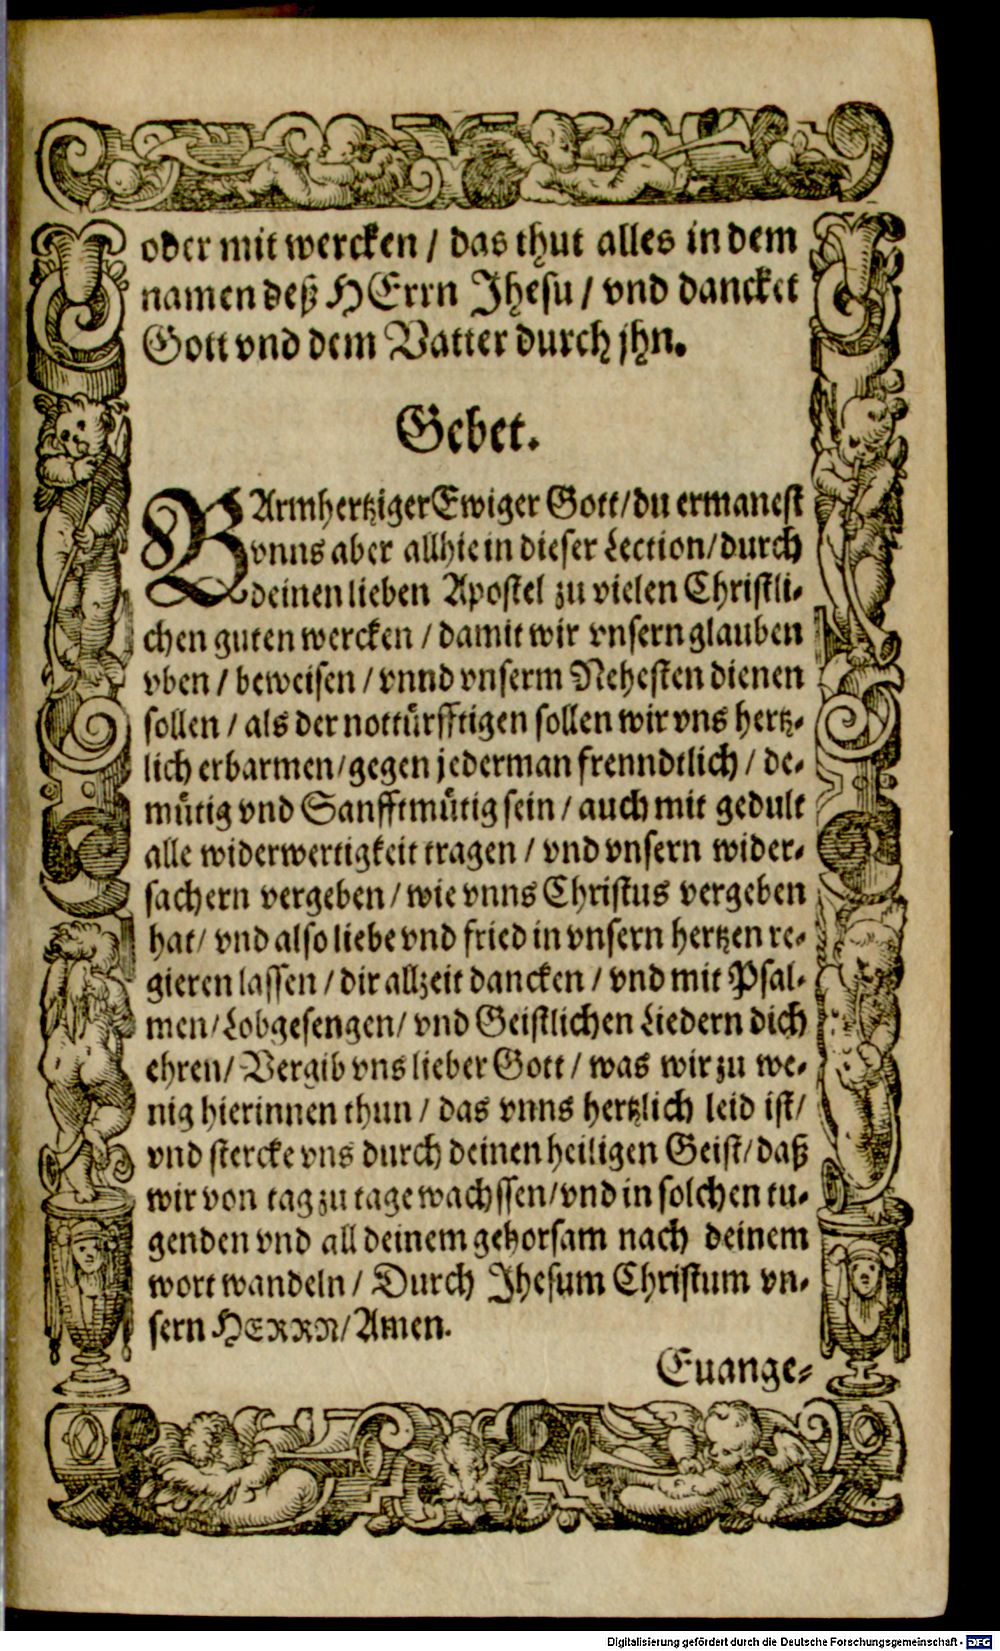 oder mit wercken / das thut alles in dem
namen deß HErrn Jhesu / vnd dancket
Gott vnd dem Vatter durch jhn.
Gebet.
BArmhertziger Ewiger Gott / du ermanest
vnns aber allhie in dieser Lection / durch
deinen lieben Apostel zu vielen Christli-
chen guten wercken / damit wir vnsern glauben
vben / beweisen / vnnd vnserm Nehesten dienen
sollen / als der nottürfftigen sollen wir vns hertz-
lich erbarmen / gegen jederman frenndtlich / de-
mütig vnd Sanfftmütig sein / auch mit gedult
alle widerwertigkeit tragen / vnd vnsern wider-
sachern vergeben / wie vnns Christus vergeben
hat / vnd also liebe vnd fried in vnsern hertzen re-
gieren lassen / dir allzeit dancken / vnd mit Psal-
men / Lobgesengen / vnd Geistlichen Liedern dich
ehren / Vergib vns lieber Gott / was wir zu we-
nig hierinnen thun / das vnns hertzlich leid ist /
vnd stercke vns durch deinen heiligen Geist / daß
wir von tag zu tage wachssen / vnd in solchen tu-
genden vnd all deinem gehorsam nach deinem
wort wandeln / Durch Jhesum Christum vn-
sern HERRN / Amen.
Euange-
Digitalisierung gefördert durch die Deutsche Forschungsgemeinschaft - DFG